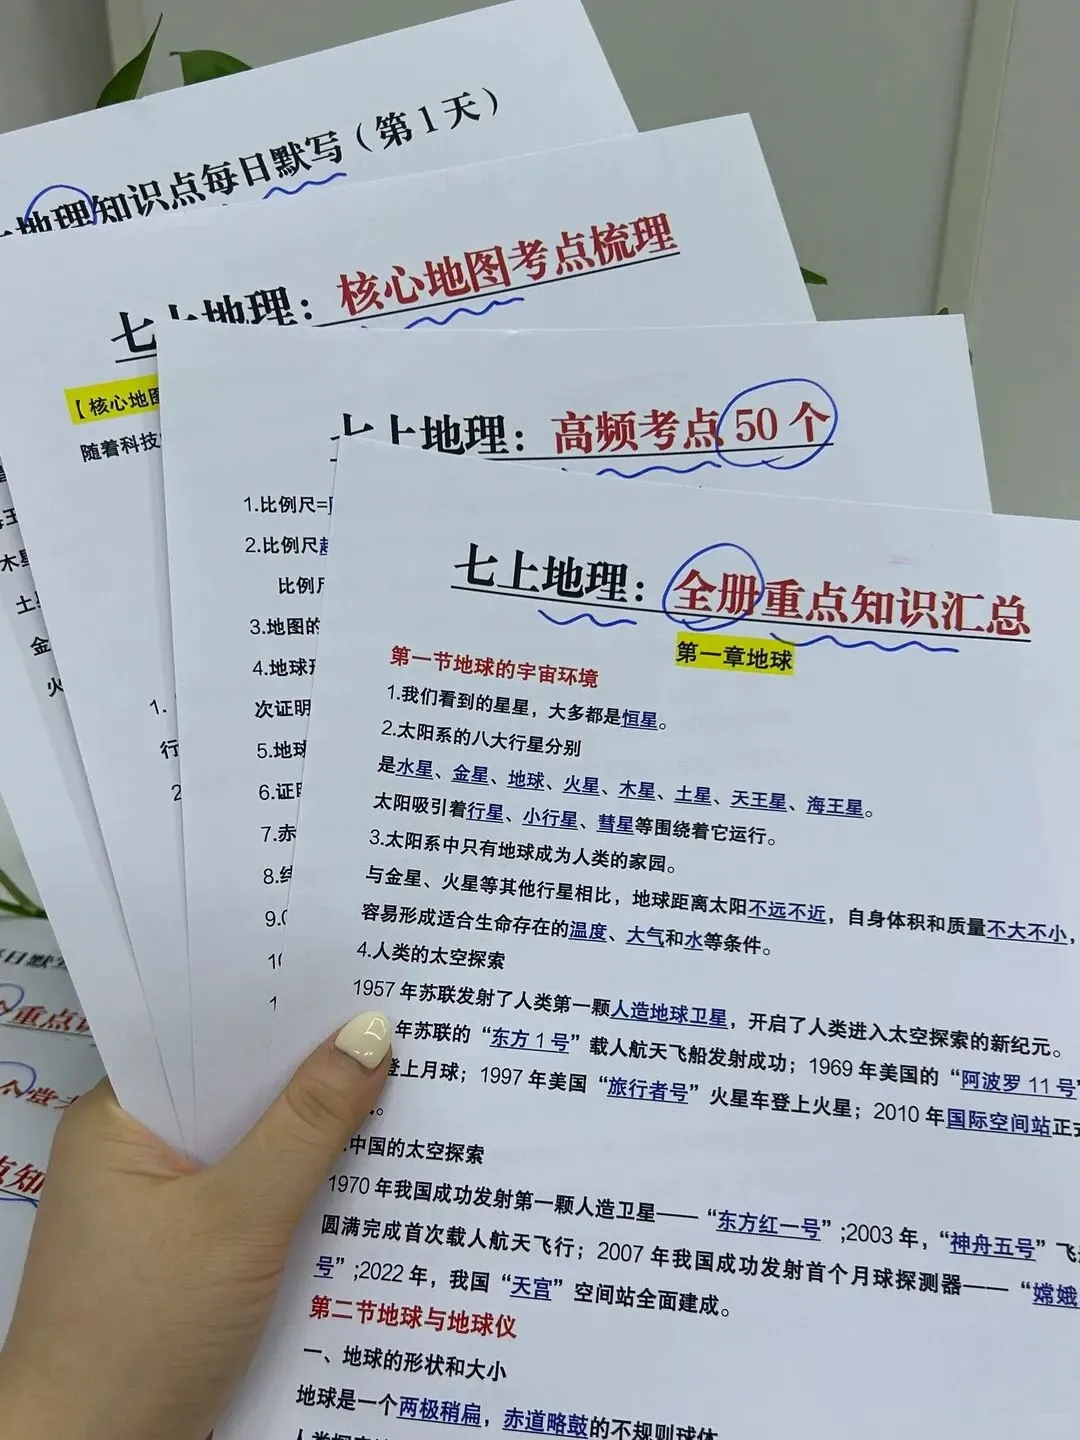 地理知识点每日默写（第1天）
七上地理：核心地图考点梳理
【核心地图
随着科技
木星
土
金
火
1.
行
2
七上地理：高频考点50个
1.比例尺=
2.比例尺越
比例尺
3.地图的
4.地球形
次证明
5.地球
6.证明
7.赤
8.纬
9.0
10
1
七上地理：全册重点知识汇总
第一章地球
第一节地球的宇宙环境
1.我们看到的星星，大多都是恒星。
2.太阳系的八大行星分别
是水星、金星、地球、火星、木星、土星、天王星、海王星。
太阳吸引着行星、小行星、彗星等围绕着它运行。
3.太阳系中只有地球成为人类的家园。
与金星、火星等其他行星相比，地球距离太阳不远不近，自身体积和质量不大不小，
容易形成适合生命存在的温度、大气和水等条件。
4.人类的太空探索
1957年苏联发射了人类第一颗人造地球卫星，开启了人类进入太空探索的新纪元。
年苏联的“东方1号”载人航天飞船发射成功；1969年美国的“阿波罗11号”
登上月球；1997年美国“旅行者号”火星车登上火星；2010年国际空间站正式
。
.中国的太空探索
1970年我国成功发射第一颗人造卫星——“东方红一号”;2003年，“神舟五号”飞
圆满完成首次载人航天飞行；2007年我国成功发射首个月球探测器——“嫦娥
号”;2022年，我国“天宫”空间站全面建成。
第二节地球与地球仪
一、地球的形状和大小
地球是一个两极稍扁，赤道略鼓的不规则球体
日默
重点
点知